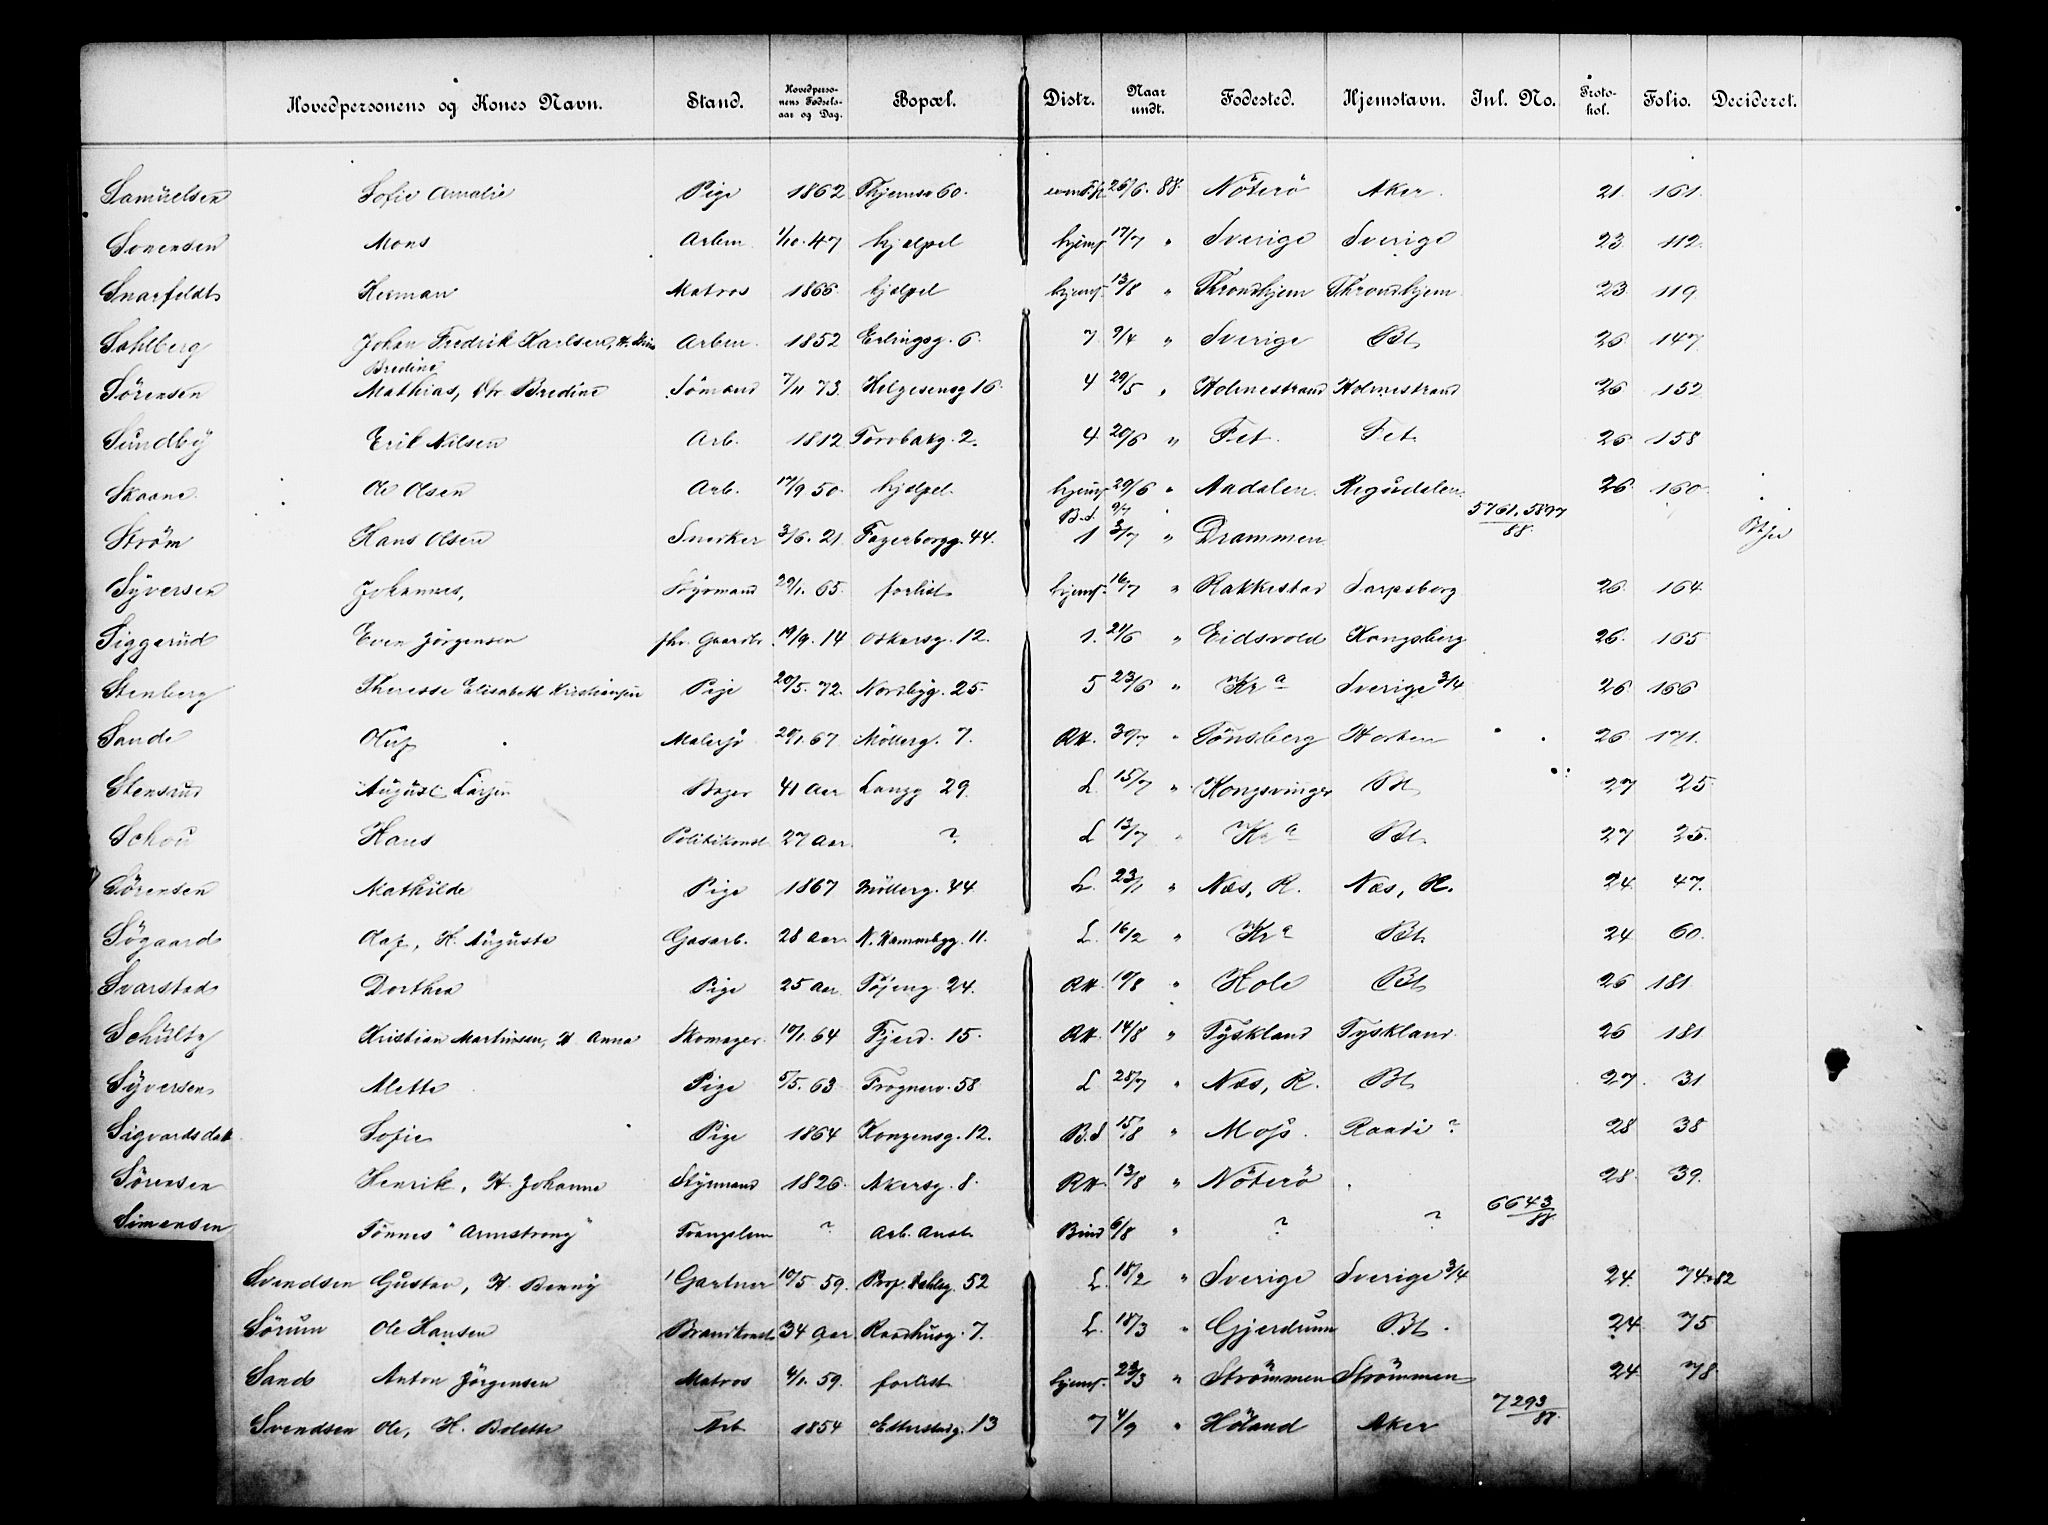 Hovedpersonens og Kones Navn. Stand. Hovedperso- nens Fødsels- aar og Dag. Bopæl. Distr. Naar undt. Fødested. Hjemstavn. Inl. No. Proto- kol. Folio. Decideret.
Samuelsen Sofie Amalie Pige 1862 Thjemsv 60. 26/6 88. Nöterö Aker. 21. 161.
Svensen Mons Arbm 1/10. 47 hjelpel hjemf. 17/7 " Sverige Sverige 23. 112.
Snarfeldt Herman Matros 1866. hjelpel hjemf. 13/8 " Throndhjem Throndhjem. 23. 119.
Sahlberg Johan Fredrik Karlsen, Arbm. 1852 Erlingsg. 6. 7. 9/4 " Sverige Bt. 26. 147.
Bredine
Sørensen Mathias, Bredine Sömand 7/11 73. Helgesensg 16. 4 29/5 " Holmestrand Holmestrand 26. 152
Sundby Erik Nilsen Arb. 1812 Torvbakg. 2. 4. 20/6 " Fet. Fet. 26. 158
Skaane. Ole Olsen Arb. 17/9 50. hjelpel. hjemf. 29/6 " Aadalen. Regndalen. 26. 160.
B.d. 9/7 5761. 5897
Strøm Hans Olsen Snekker 3/6. 21. Fagerborgg. 44. 1 3/7 " Drammen 88.
Syversen Johannes, Styrmand 29/1. 65. forlist hjemf. 16/7 " Rakkestad Sarpsborg 26. 164.
Siggerud Even Jørgensen fhv. Gaardbr. 19/9. 14 Oskarsg. 12. 1. 21/6 " Eidsvold Kongsberg 26. 165
Stenberg Theresse Elisabeth Kristiansen Pige 20/5. 72. Nordbyg. 25. 5 23/6 " Kra Sverige 3/4 26. 166
Sande Oluf Malersv. 20/1. 67 Möllerg. 7. Rtt. 30/7 " Tönsberg Horten 26. 171.
Stensrud August Larsen Bager 41 Aar Langg 29. L. 15/7 " Kongsvinger Bt. 27 25.
Schou Hans Politikonst. 27 Aar. ? L 13/7 " Kra Bt. 27 25.
Sørensen Mathilde Pige 1867 Möllerg. 44 L. 23/1 " Næs, R. Næs, R. 24. 47.
Søgaard Olaf, H. Augusta Gasarb. 28 Aar. N. Hammbgg. 11. L. 16/2 " Kra Bt. 24 60.
Svarstad Dorthea Pige 25 Aar. Töjeng. 24. Rtt. 10/8 " Hole Bt. 26 181.
Schultz Kristian Martinsen, H. Anna Skomager. 10/1. 64 Fjerd. 15. Rtt. 14/8 " Tyskland Tyskland. 26 181.
Syversen Alette Pige 5/5. 63. Frognerv. 58 L. 28/7 " Næs, R. Bt. 27. 31
Sigvartsdatt. Sofie Pige 1864 Kongensg. 12. B.d 15/8 " Moss. Raade ? 28 38
Sørensen Henrik, H. Johanne Styrmand 1826. Akersg. 8. Rtt. 13/8 " Nöterö 28. 39.
6643
Simensen Tönnes "Armstrong" Tvangslem ? Arb. Anst. Bind 6/8 " ? ? 88.
Svendsen Gustav, H. Benny Gartner 10/5. 59. Prof. Dahlsg. 52 L. 18/2 " Sverige Sverige 3/4 24. 74+82
Sørum Ole Hansen Brandkonst. 34 Aar. Raadhusg. 7. L. 18/3 " Gjerdrum Bt. 24. 75
Sand Anton Jørgensen Matros 4/1. 59. forlist hjemf. 23/3 " Strömmen Strömmen 24. 78
7293
Svendsen Ole, H. Bolette Arb 1854 Etterstadg. 13 7 4/9 " Höland Aker 88.